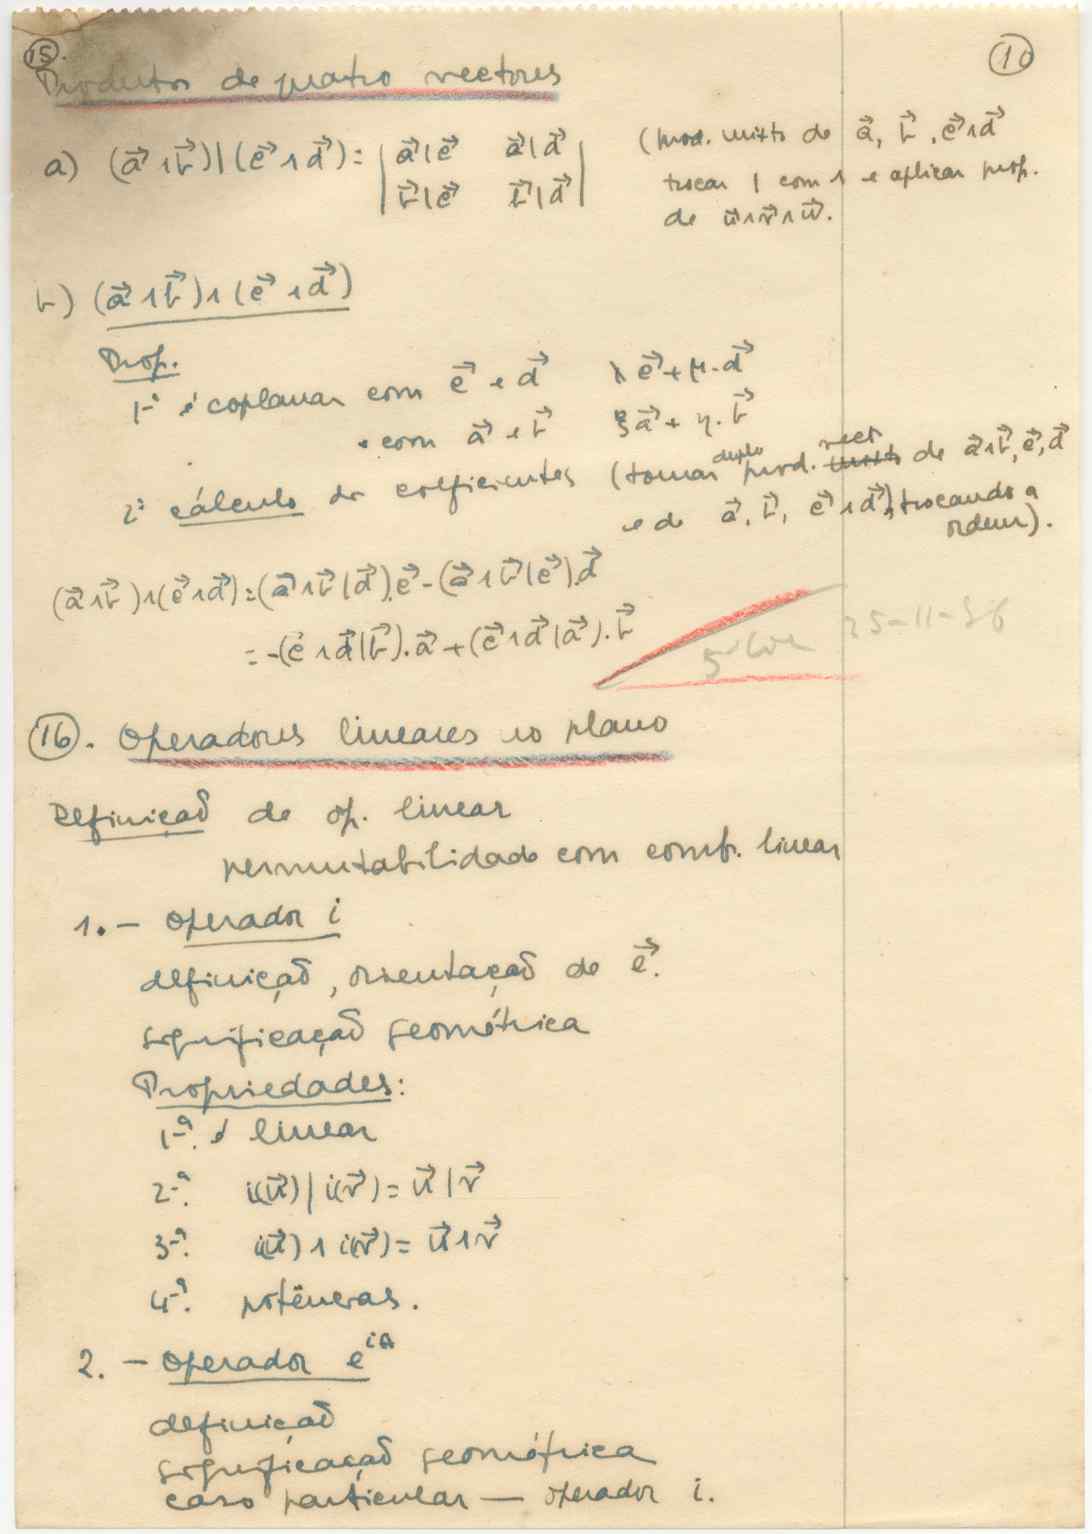 15.
10
Produtos de quatro vectores
a) (a⃗ ∧ b⃗) | (c⃗ ∧ d⃗) = | a⃗|c⃗  a⃗|d⃗ |
| b⃗|c⃗  b⃗|d⃗ |
(prod. misto de a⃗, b⃗, c⃗∧d⃗
trocar | com ∧ e aplicar prop.
de u⃗∧v⃗∧w⃗.
b) (a⃗ ∧ b⃗) ∧ (c⃗ ∧ d⃗)
Prop.
1ª é coplanar com c⃗ e d⃗  λc⃗ + μ.d⃗
e com a⃗ e b⃗  ξa⃗ + η.b⃗
2ª cálculo de coeficientes (tomar duplo prod. vect misto de a⃗∧b⃗, c⃗, d⃗
e de a⃗, b⃗, c⃗∧d⃗, trocando a
ordem).
(a⃗∧b⃗)∧(c⃗∧d⃗) = (a⃗∧b⃗|d⃗).c⃗ - (a⃗∧b⃗|c⃗).d⃗
= -(c⃗∧d⃗|b⃗).a⃗ + (c⃗∧d⃗|a⃗).b⃗
25-11-56
16. Operadores lineares no plano
Definição de op. linear
permutabilidade com comb. linear
1. - Operador i
definição, orientação de e⃗.
significação geométrica
Propriedades:
1ª. é linear
2ª. i(u⃗) | i(v⃗) = u⃗ | v⃗
3ª. i(u⃗) ∧ i(v⃗) = u⃗ ∧ v⃗
4ª. potências.
2. - Operador e^{iθ}
definição
significação geométrica
caso particular — operador i.